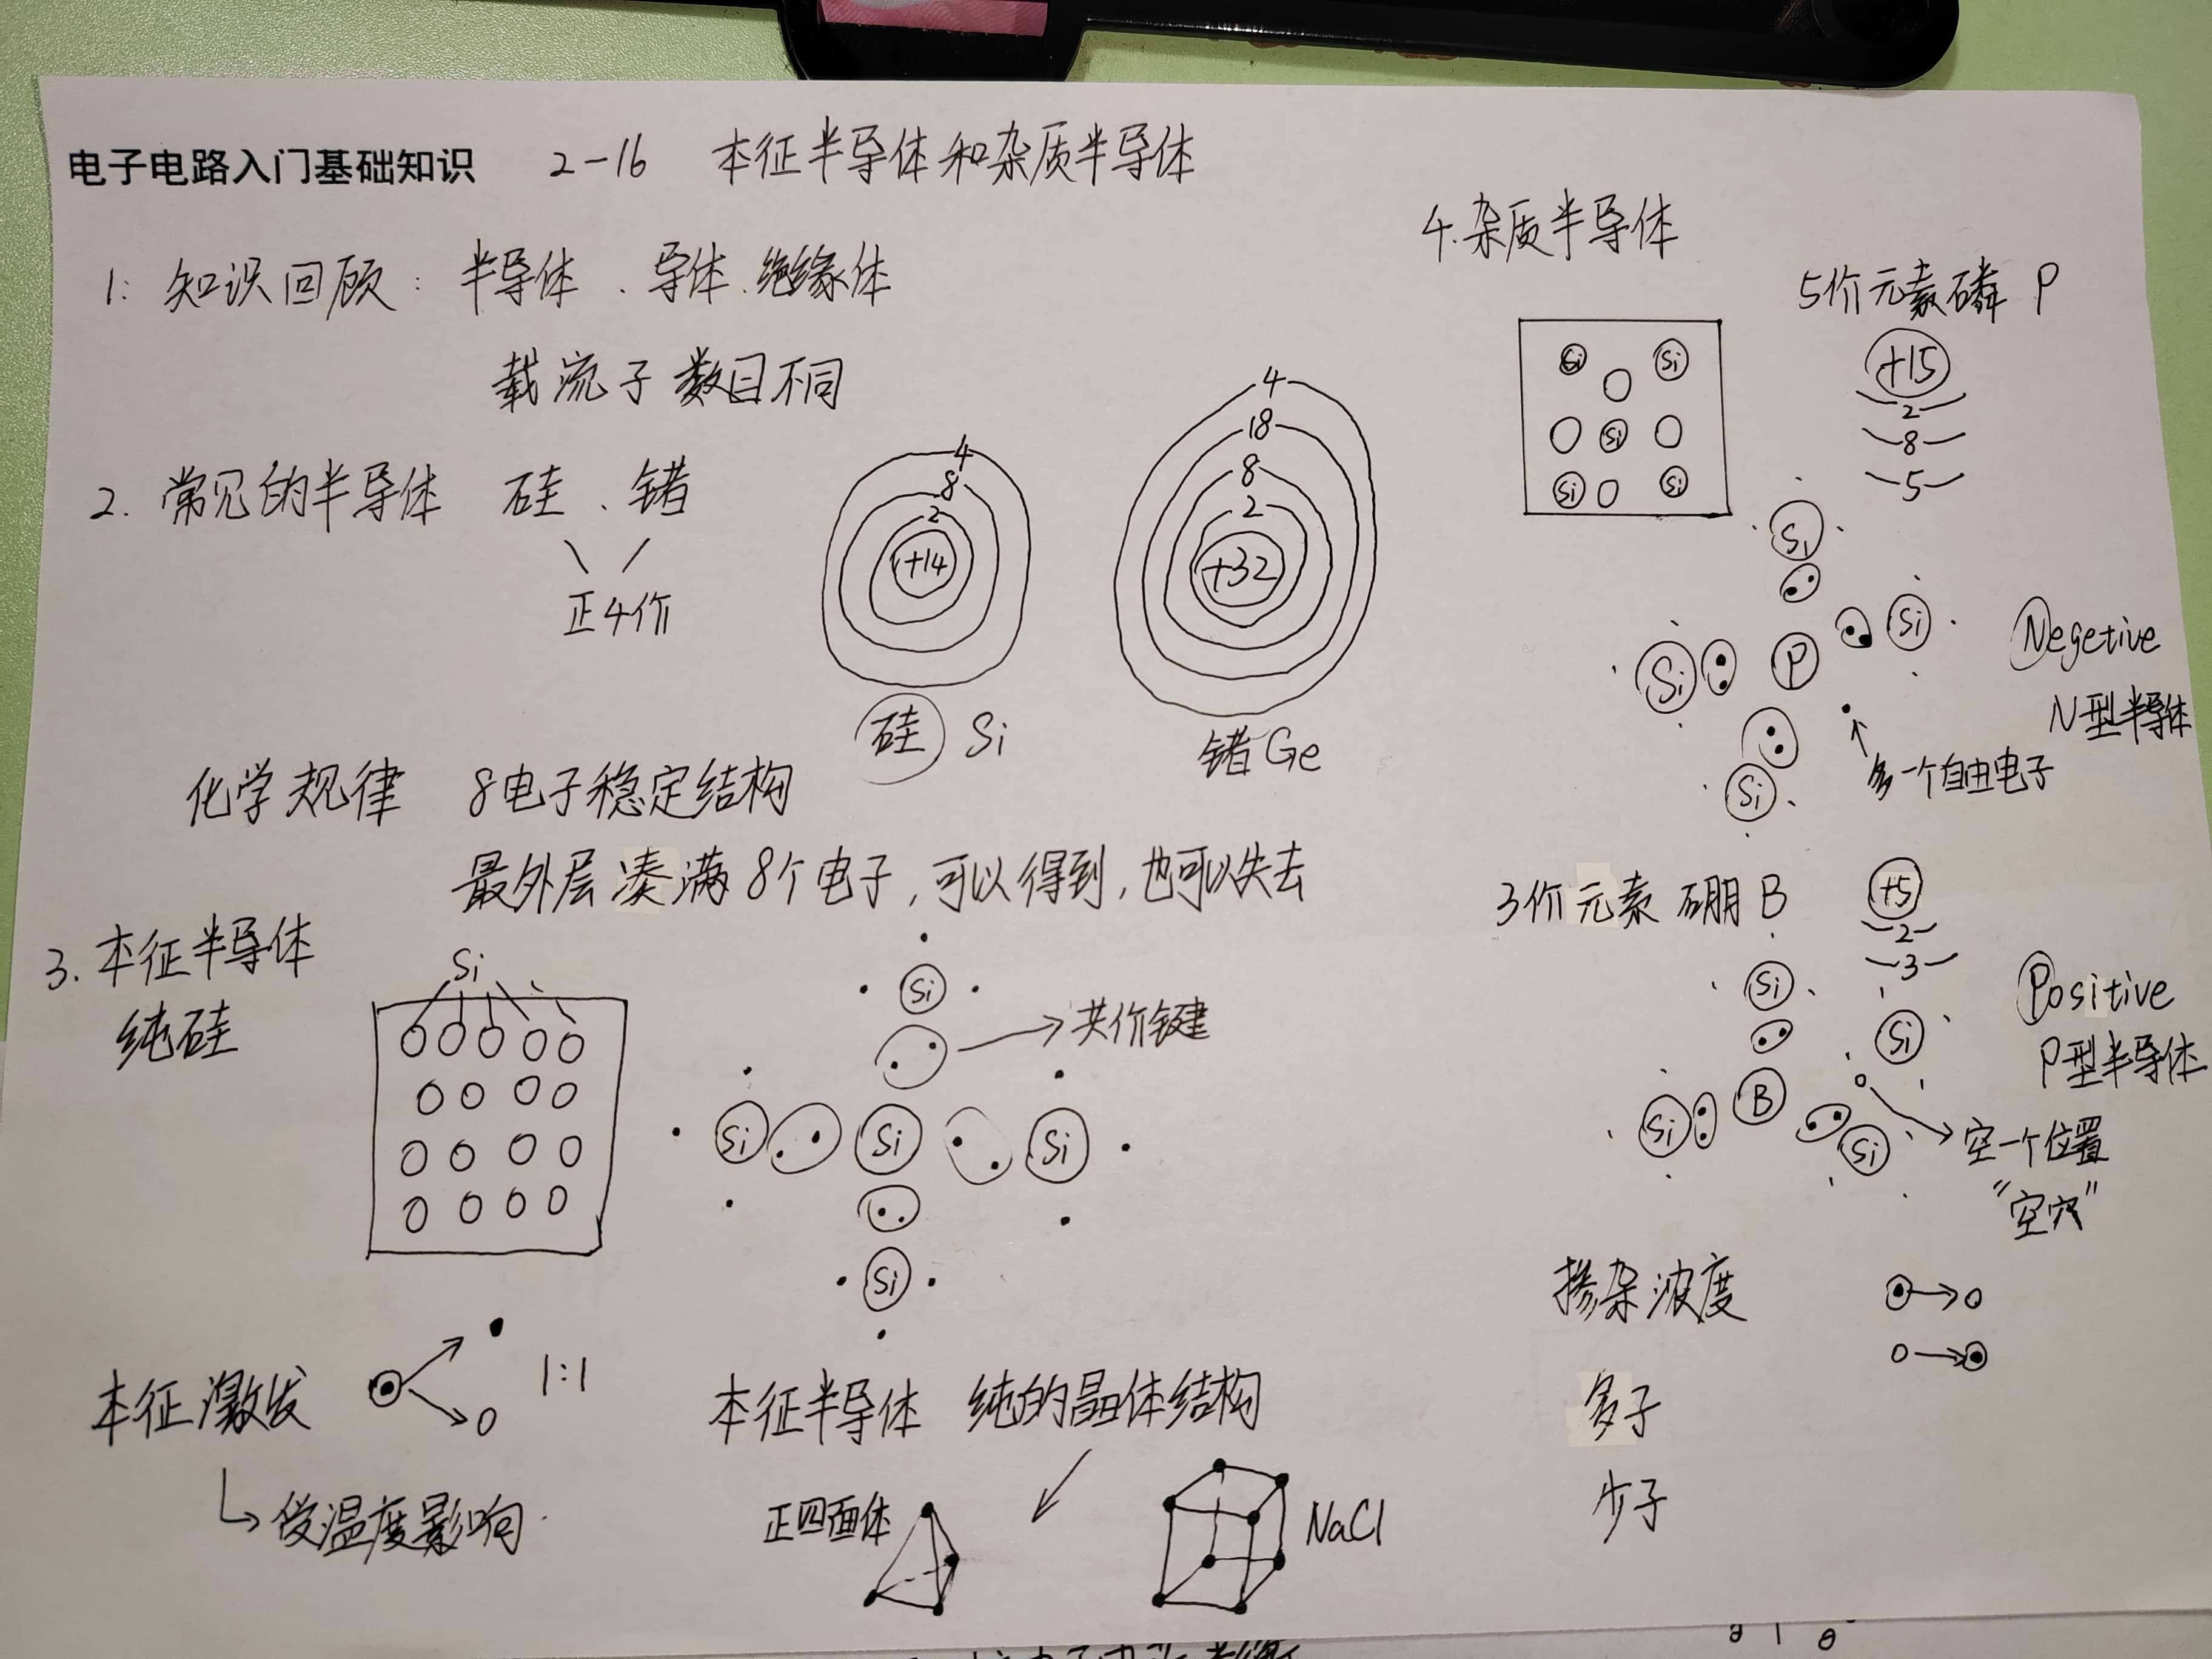 电子电路入门基础知识 2-16 本征半导体和杂质半导体
1: 知识回顾: 半导体、导体、绝缘体
载流子数目不同
2. 常见的半导体 硅、锗
正4价
4
8
2
+14
硅 Si
4
18
8
2
+32
锗 Ge
化学规律 8电子稳定结构
最外层凑满8个电子,可以得到,也可以失去
3. 本征半导体
纯硅
Si
Si
共价键
Si Si Si
Si
本征激发 1:1
受温度影响
本征半导体 纯的晶体结构
正四面体
NaCl
4.杂质半导体
Si Si
Si
Si Si
5价元素磷 P
+15
2
8
5
Si
Si P Si
Si
多一个自由电子
Negetive
N型半导体
3价元素 硼 B
+5
2
3
Si
Si
Si B
Si
空一个位置
“空穴”
Positive
P型半导体
掺杂浓度
多子
少子